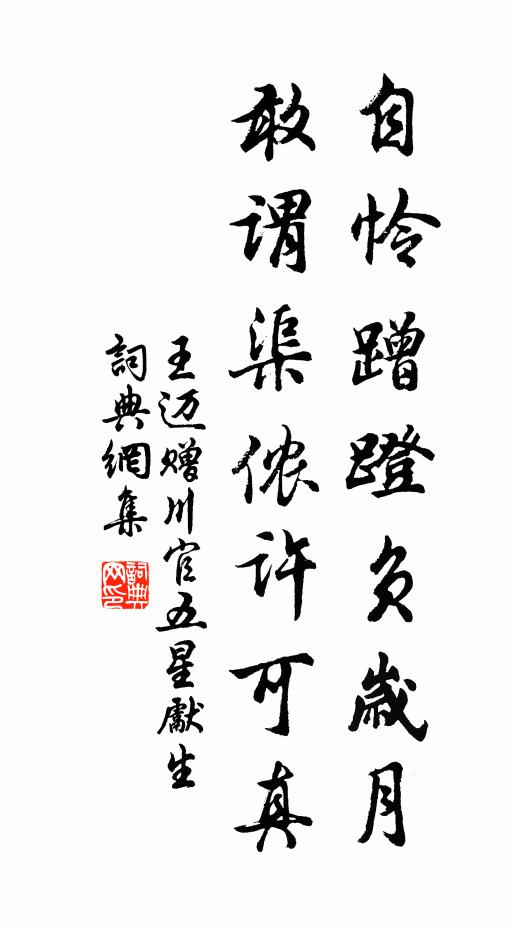 自怜蹭蹬负歲月
敢谓渠侬许可真
王迈赠川官五星獻生
詞典網集
詞典网印